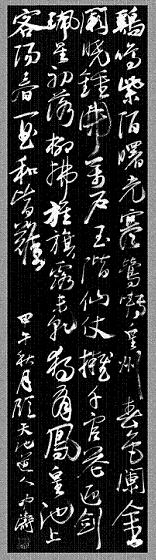 鷄鳴紫陌曙光寒鶯囀皇州春色闌金
闕曉鐘開萬户玉階仙仗擁千官花迎劍
珮星初落柳拂旌旗露未乾獨有鳳皇池上
客陽春一曲和皆難
甲午秋月天池道人